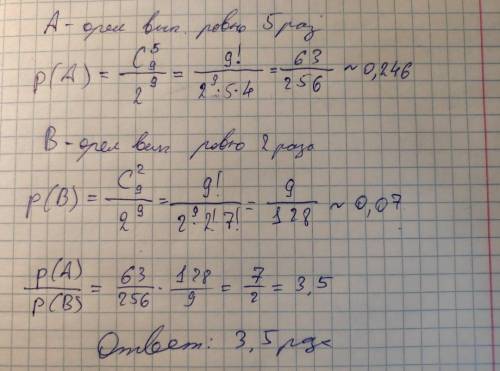 A - орел вып. ровно 5 раз
p(A) = C₉⁵ / 2⁹ = 9! / 2⁹·5·4 = 63 / 256 ~ 0,246
B - орел вып ровно 2 раза
p(B) = C₉² / 2⁹ = 9! / 2⁹·2!7! = 9 / 128 ~ 0,07
p(A) / p(B) = 63 / 256 · 128 / 9 = 7 / 2 = 3,5
Ответ: 3,5 раза